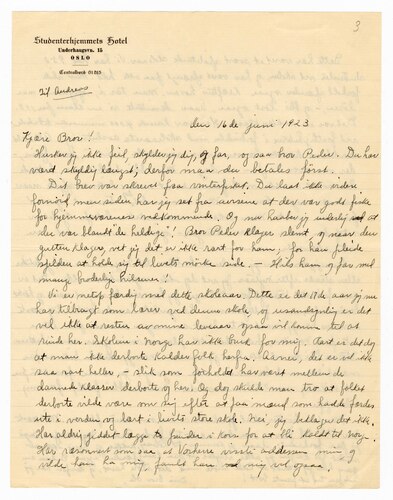 3
Studenterhjemmets Hotel
Underhaugsvn. 15
OSLO
Centralbord 61263
Til Andreas
den 16de juni 1923
Kjære Bror!
Husker jeg ikke feil, skylder jeg dig, og far, og saa bror Peder. Du har
været skyldig længst; derfor maa du betales først.
Dit brev var skrevet fra vinterfisket. Du lavt ikke viden
fornøid men siden har jeg set fra aviserne at der var godt fiske
for hjemmeværenes vedkommende. Og nu haaber jeg inderlig at
du var blandt de heldige! Bror Peder klager slemt og naar den
gutten klager, vet jeg det er ikke rart for ham, for han pleide
sjelden at holde sig til livets mørke side. — Hils ham og far med
mange broderlige hilsener!
Vi er netop færdig med dette skoleaar. Dette er det 17de aar jeg nu
har tilbragt som lærer ved denne skole, og usandsynlig er det
vel ikke at resten av mine leveaar ogsaa vil komme til at
rinde her. Skolene i Norge har ikke bruk for mig. Rart er det dog
at man ikke derborte kalder folk herfra. Aarner, det er vel ikke
saa rart heller, — slik som forholdet har været mellem de
dannede klasser derborte og her. Og dog skulde man tro at folket
derborte vilde være om sig efter at faa mænd som hadde færdes
ute i verden og lært i livets store skole. Nei, jeg beklager det ikke.
Har aldrig giddet lægge to pinder i kors for at bli kaldt til Norge.
Har ræsonert som saa, at Vorherre visste addressen min og
vilde han ha mig, fandt han vel mig vel ogsaa.